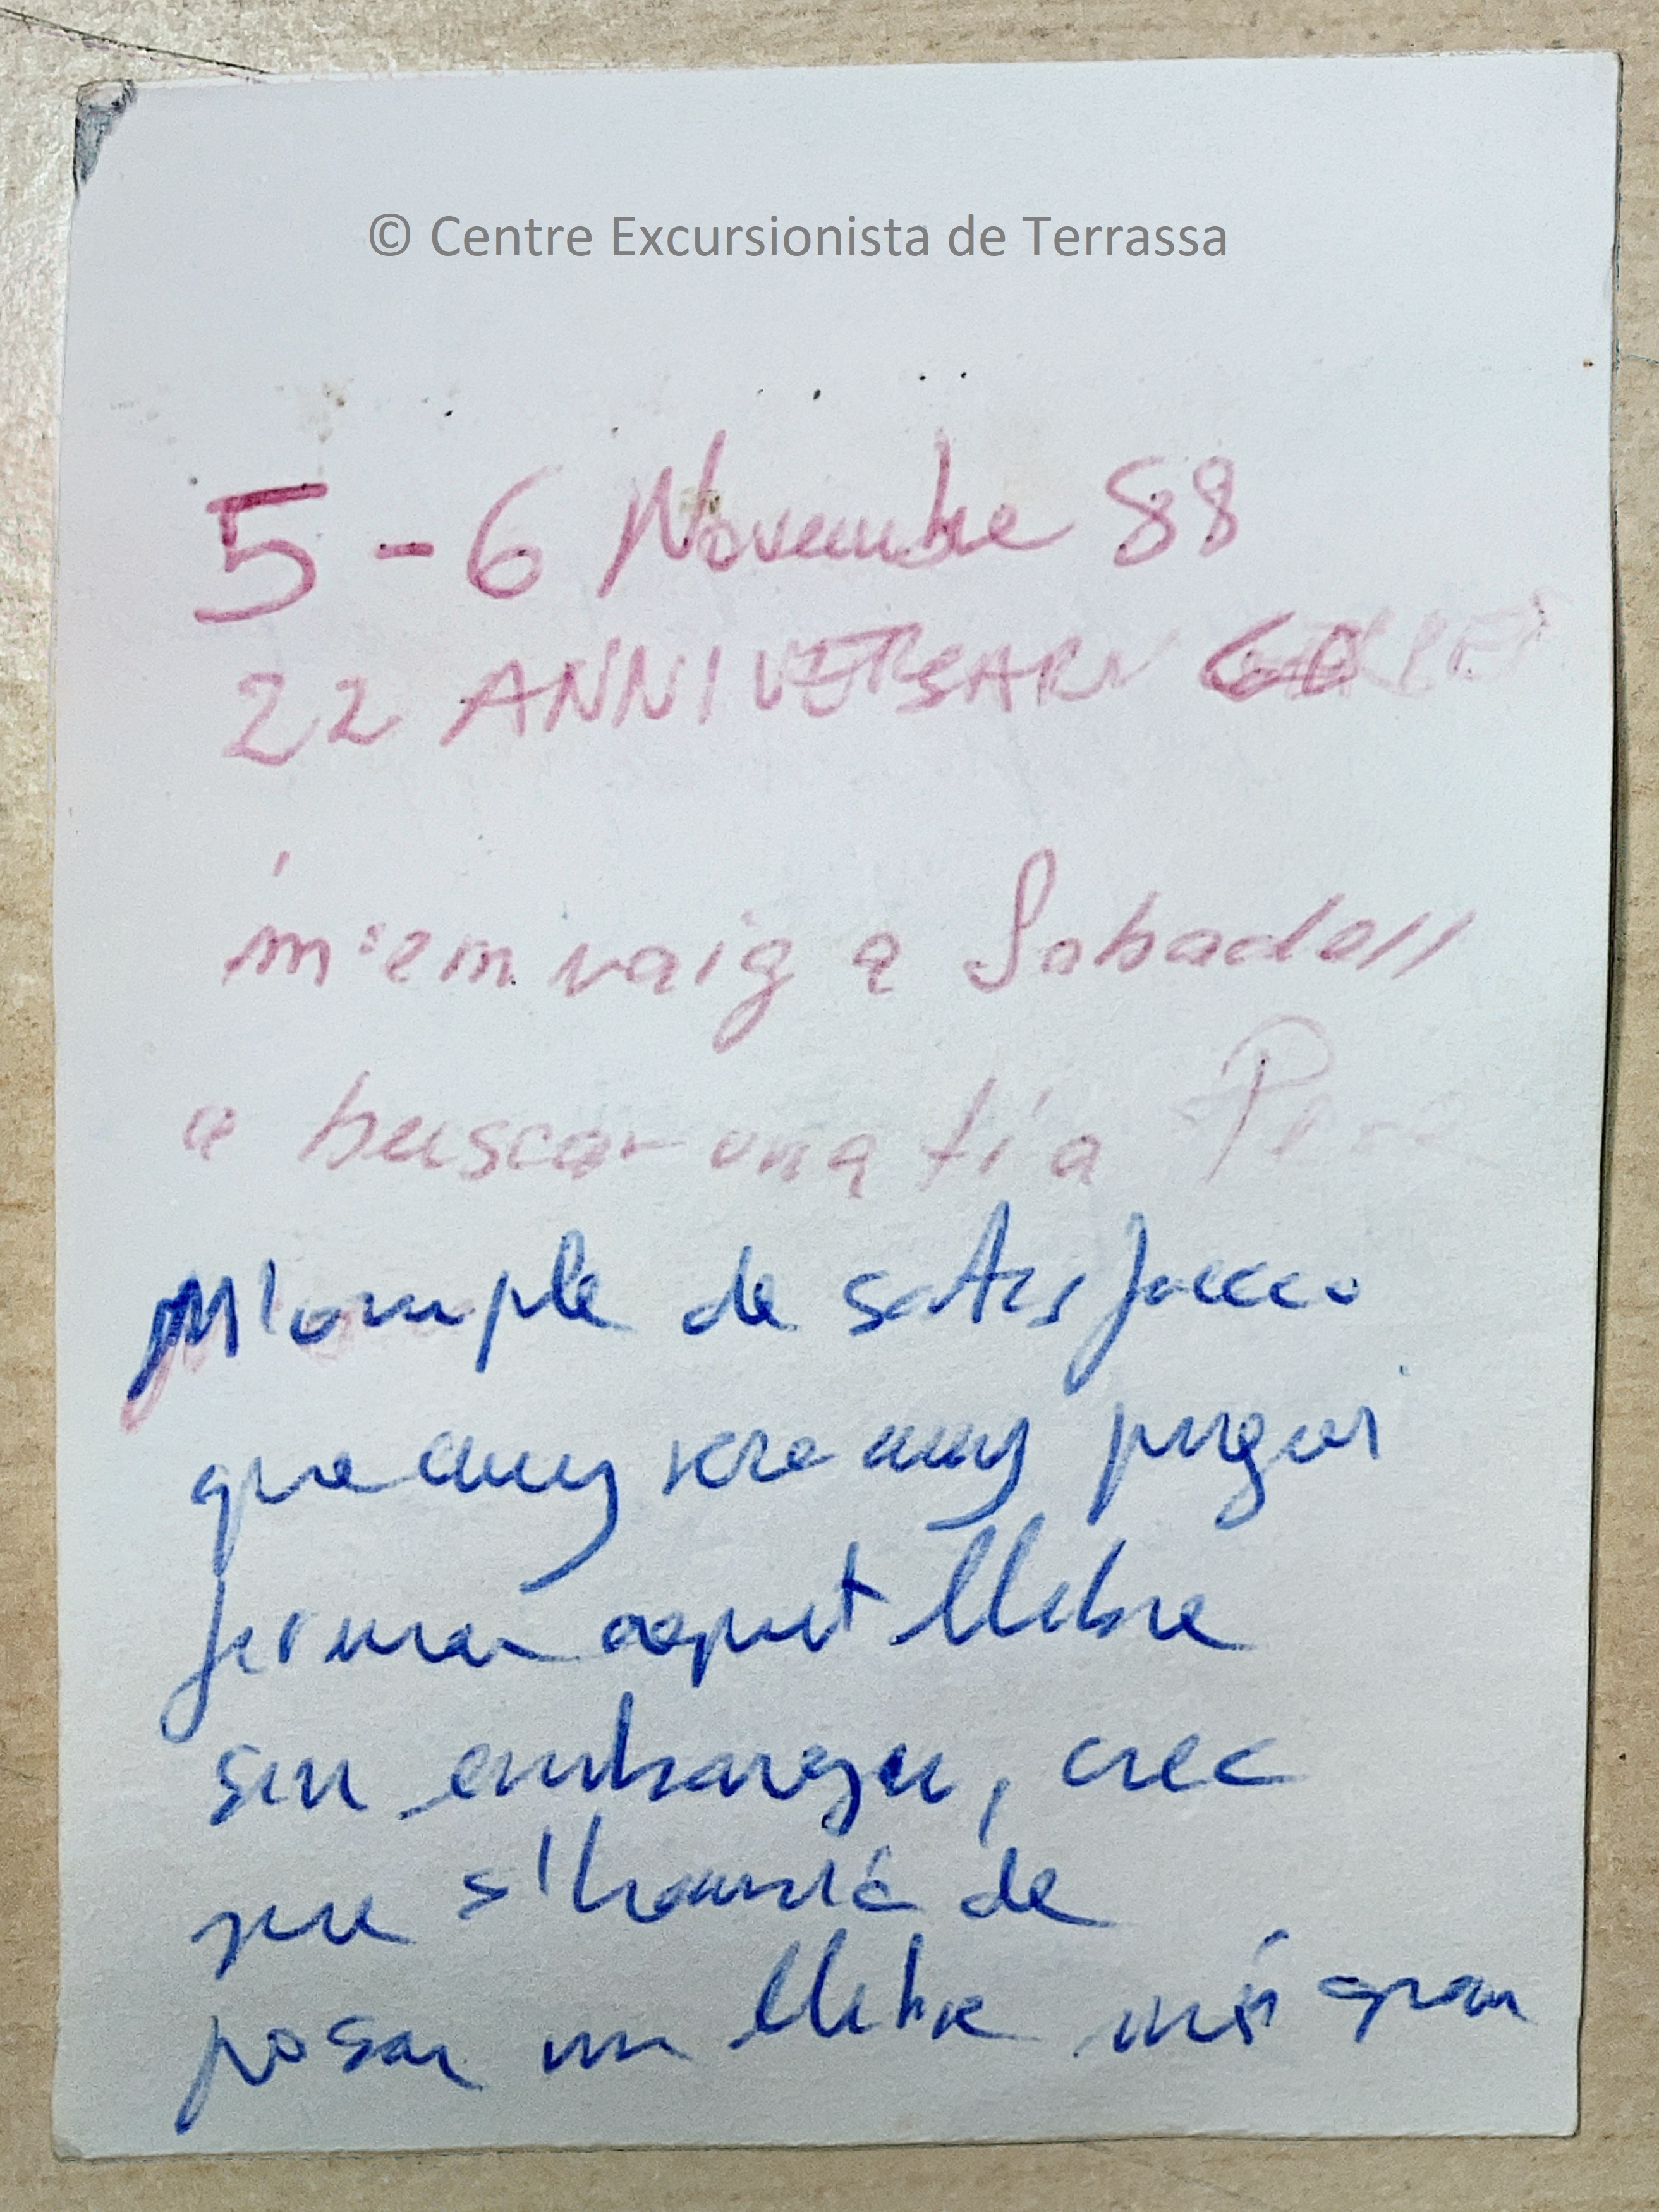 © Centre Excursionista de Terrassa
5-6 Novembre 88
22 ANNIVERSARI
m'em vaig a Sabadell
a buscar una tía
M'omple de satisfacció
que any rere any pugui
firmar aquet llibre
sin embargu, crec
que s'hauria de
posar un llibre més gran